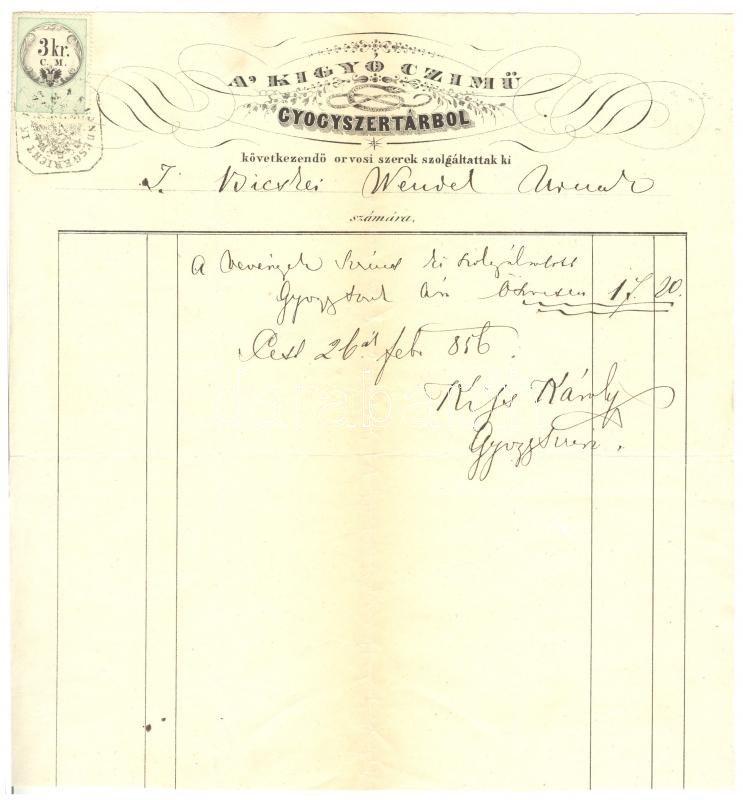 3 kr.
C. M.
A' KIGYÓ CZIMÜ
GYOGYSZERTÁRBOL
következendö orvosi szerek szolgáltattak ki
T. Bicskei Wendel Urnak
számára.
A vevények szerint ki szolgáltatott
Gyogyszerek ára Öszvesen 17. 20.
Pest 26 át feb. 856.
Károly